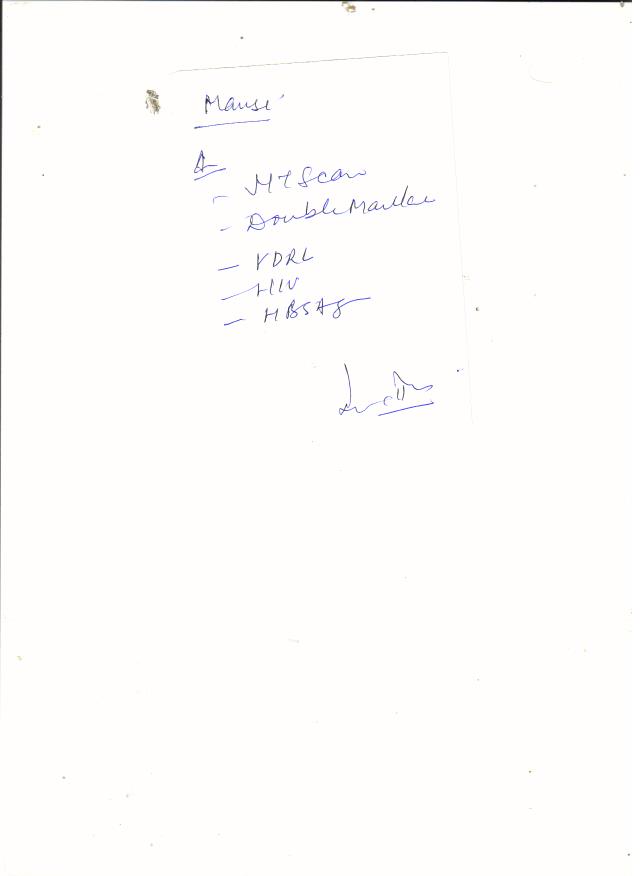 Mansi
- NT Scan
- Double Marker
- VDRL
- HIV
- HBSAg